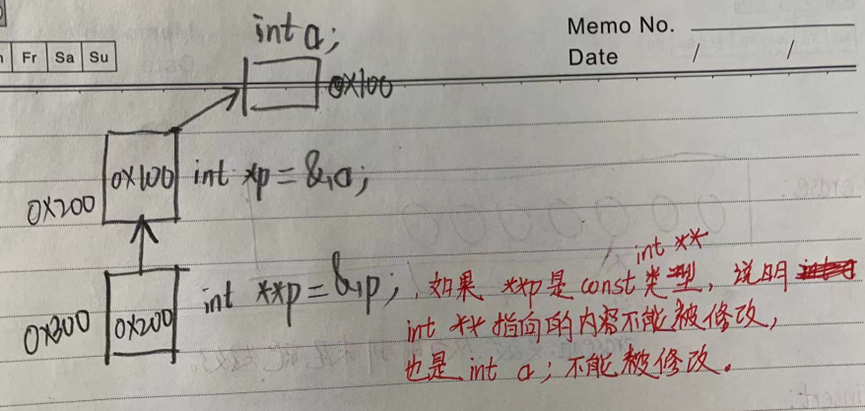 Memo No.
Date / /
Fr Sa Su
int a;
0x100
0x100 int *p = &a;
0x200
int **
int **p = &p; 如果 **p是 const 类型，说明
0x300 0x200
int ** 指向的内容不能被修改，
也是 int a; 不能被修改。